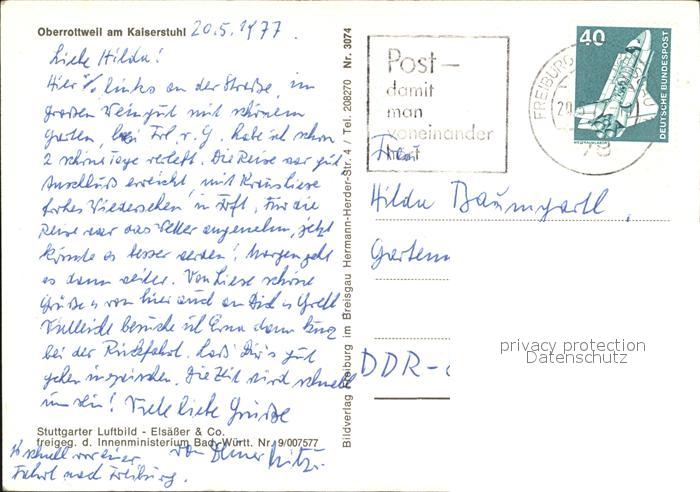 Oberrottweil am Kaiserstuhl 20.5.1977.
Liebe Hilda!
Hier links an der Straße, im
großen Weingut mit schönem
Garten, bei Frl. v. G. habe ich schon
2 schöne Tage verlebt. Die Reise war gut
Anschluß erreicht, mit
frohes Wiedersehen in Für die
Reise war das Wetter angenehm, jetzt
könnte es besser werden! Morgen geht
es dann weiter. Von Liese schöne
Grüße u. von hier auch an Dich u. Gretl
Vielleicht besuche ich Erna dann kurz
bei der Rückfahrt. Laß Dir's gut
gehen inzwischen. Die Zeit wird schnell
um sein! Viele liebe Grüße
von Deiner
schnell vor einer
Fahrt nach Freiburg.
Stuttgarter Luftbild - Elsäßer & Co.
freigeg. d. Innenministerium Bad.-Württ. Nr. 9/007577
Bildverlag Freiburg im Breisgau Herrmann-Herder-Str. 4 / Tel. 208270 Nr. 3074
Post-
damit
man
voneinander
hört
FREIBURG
40
DEUTSCHE BUNDESPOST
Frau
Hilda Baumgartl,
DDR-
privacy protection
Datenschutz